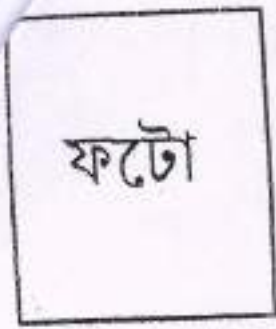 ফটো